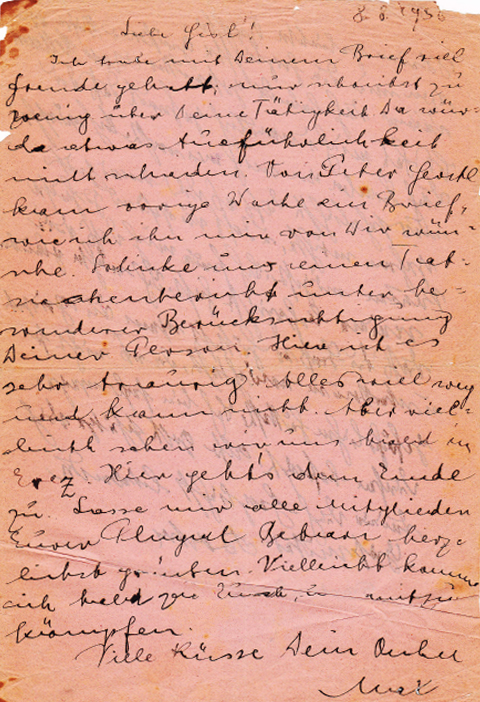 Liebe Gisl!
Ich habe mit Deinem Brief viel
Freude gehabt, nur schreibst zu
wenig über Deine Tätigkeit Da wür-
de etwas Ausführlichkeit
nicht schaden. Von Peter Gerstl
kam vorige Woche ein Brief,
wie ich ihn mir von Dir wün-
sche. Schicke uns einen Tat-
sachenbericht unter be-
sonderer Berücksichtigung
Deiner Person. Hier ist es
sehr traurig. Alles will weg
und kann nicht. Aber viel-
leicht sehen wir uns bald in
Erez Hier geht's dem Ende
zu. Lasse mir alle Mitglieder
Eurer Plugat herz-
lichst grüßen. Vielleicht komme
ich bald zu Euch, um mitzu
kämpfen.
Viele Küsse Dein Onkel
Max